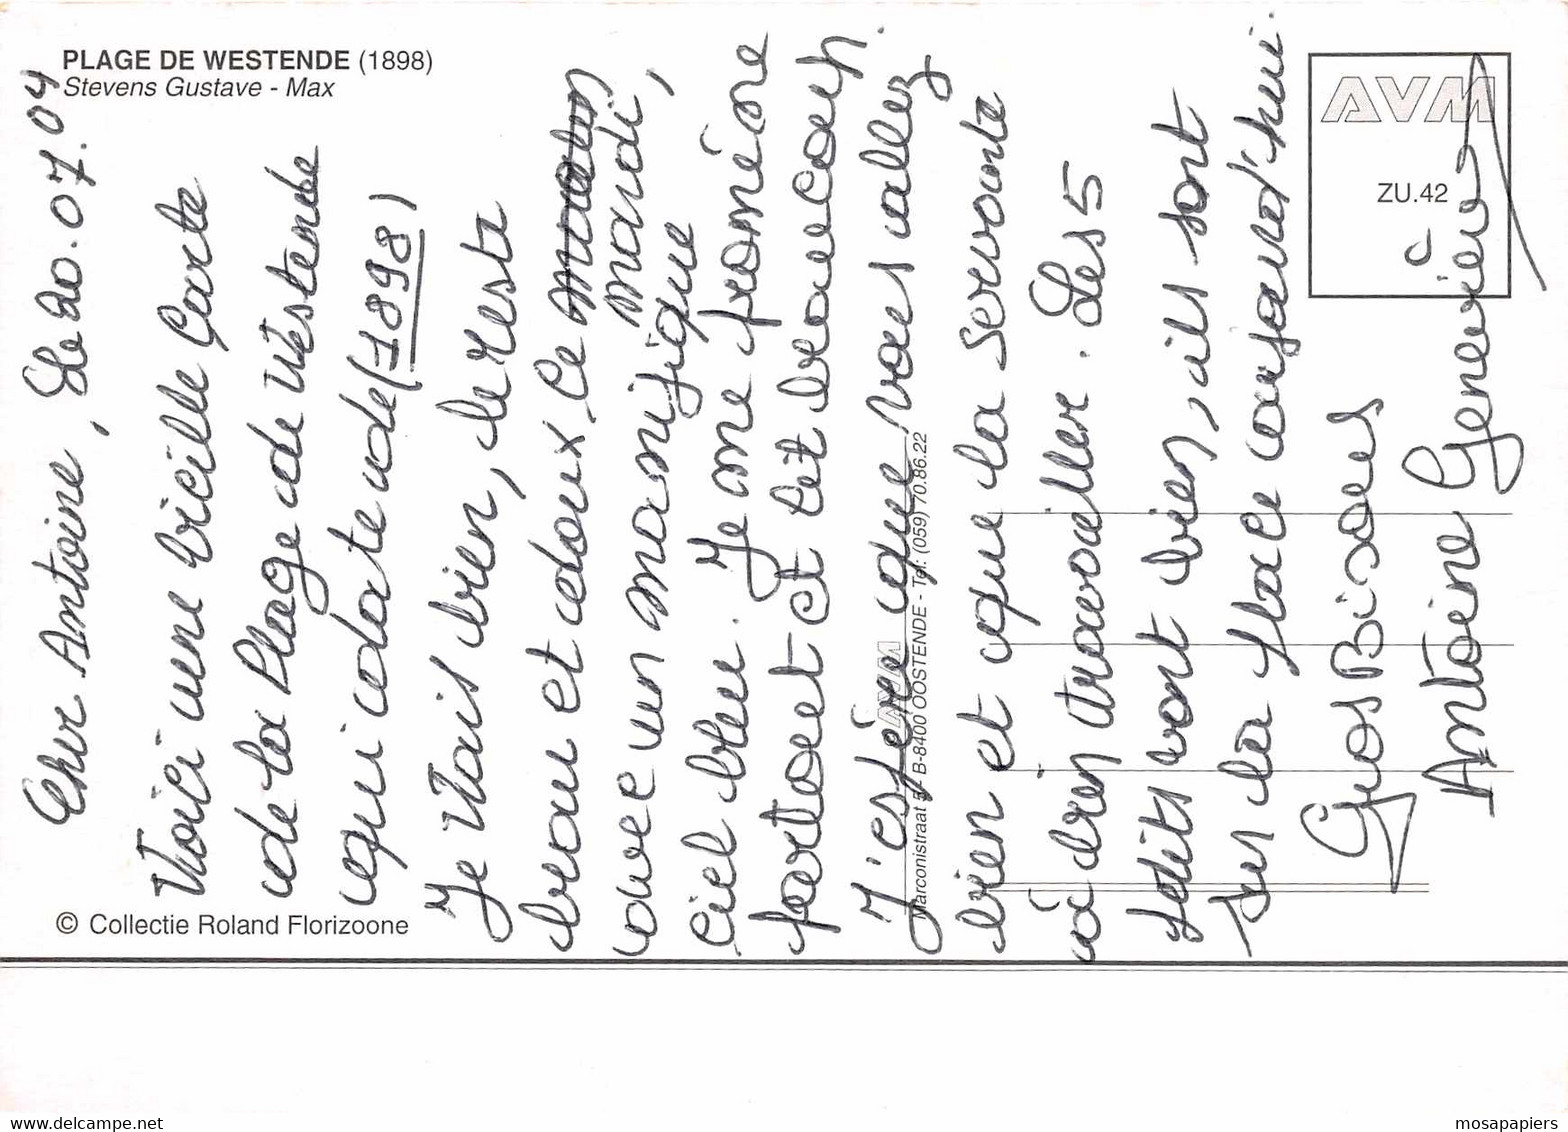 PLAGE DE WESTENDE (1898)
Stevens Gustave - Max
© Collectie Roland Florizoone
AVM
ZU.42
AVM
Marconistraat B-8400 OOSTENDE - Tel. (059) 70.86.22
Cher Antoine, Le 20.07.04
Voici une vieille Carte
de la Plage de Westende
qui date de (1898)
Je vais bien, le reste
beau et doux ce
mardi,
avec un magnifique
ciel bleu. Je me promène
partout et et beaucoup.
J'espère que vous allez
bien et que la servante
à bien travailler. Les 5
petits vont bien, ils sont
sur la place aujourd'hui.
Gros Bisous
à
Antoine Geneviève
delcampe.net
mosapapiers